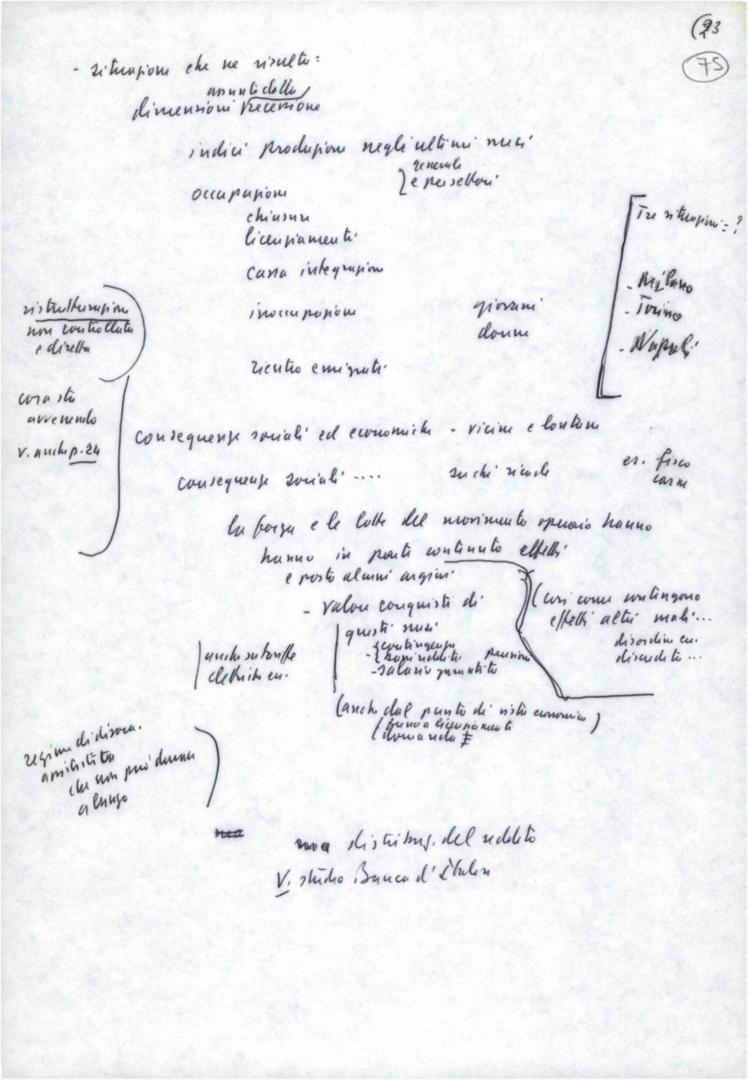 (23
75
- situazione che ne risulta:
assunti della
dimensioni recessione
indici produzione negli ultimi mesi
generale
e per settori
occupazione
chiusure
licenziamenti
cassa integrazione
inoccupazione giovani
donne
rientro emigrati
Tre situazioni: ?
- Milano
- Torino
- Napoli
ristrutturazione
non controllata
e diretta
cosa sta
avvenendo
v. anche p. 24
conseguenze sociali ed economiche - vicine e lontane
conseguenze sociali .... su chi ricade es. fisco
carne
la forza e le lotte del movimento operaio hanno
hanno in parte contenuto effetti
e posto alcuni argini
- valore conquiste di
questi mesi
- contingenza
- pensioni
- salario garantito
anche su tariffe
elettriche ecc.
(così come contengono
effetti altri mali...
disordine ec.
discredito ...
(anche dal punto di vista economico)
(freno a licenziamenti
domanda
regime di disocc.
assistita
che non può durare
a lungo
ma
ma distribuz. del reddito
V. studio Banca d'Italia